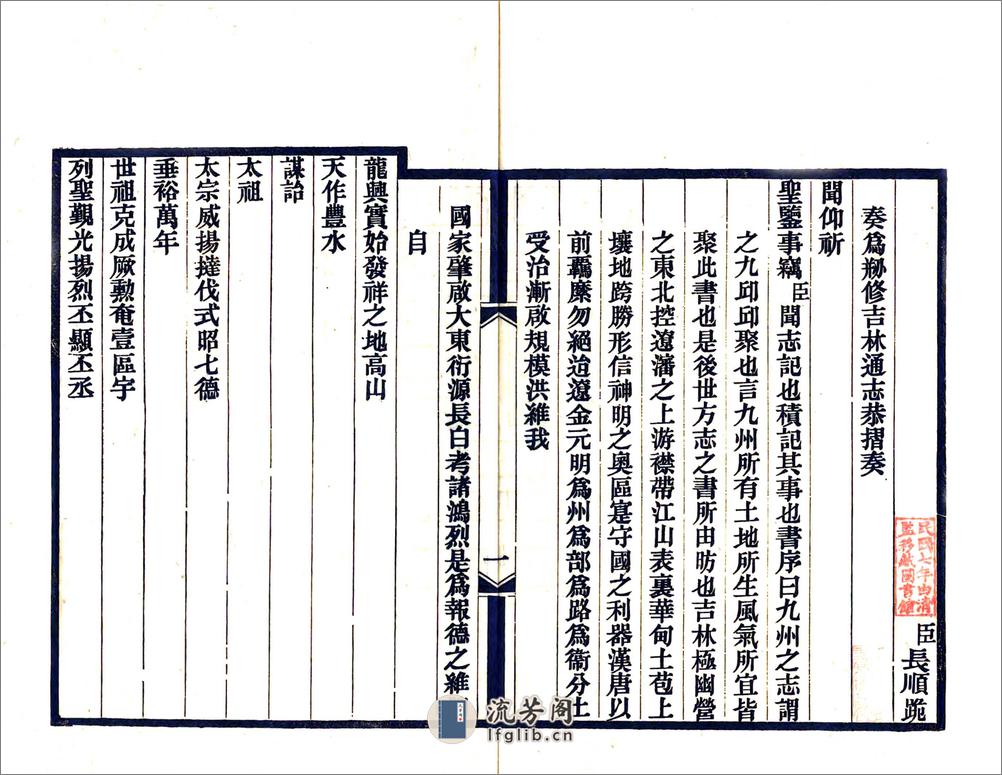 臣長順跪
奏爲刱修吉林通志恭摺奏
聞仰祈
聖鑒事竊臣聞志記也積記其事也書序曰九州之志謂
之九邱邱聚也言九州所有土地所生風氣所宜皆
聚此書也是後世方志之書所由昉也吉林極幽營
之東北控遼瀋之上游襟帶江山表裏華甸土苞上
壤地跨勝形信神明之奧區寔守國之利器漢唐以
前羈縻勿絕迨遼金元明爲州爲部爲路爲衞分土
受治漸啟規模洪維我
國家肇啟大東衍源長白考諸鴻烈是爲報德之維
自
龍興實始發祥之地高山
天作豐水
謀詒
太祖
太宗威揚撻伐式昭七德
垂裕萬年
世祖克成厥勳奄壹區宇
列聖覲光揚烈丕顯丕丞
一
民國六年由清
監移藏圖書館
流芳阁
lfglib.cn